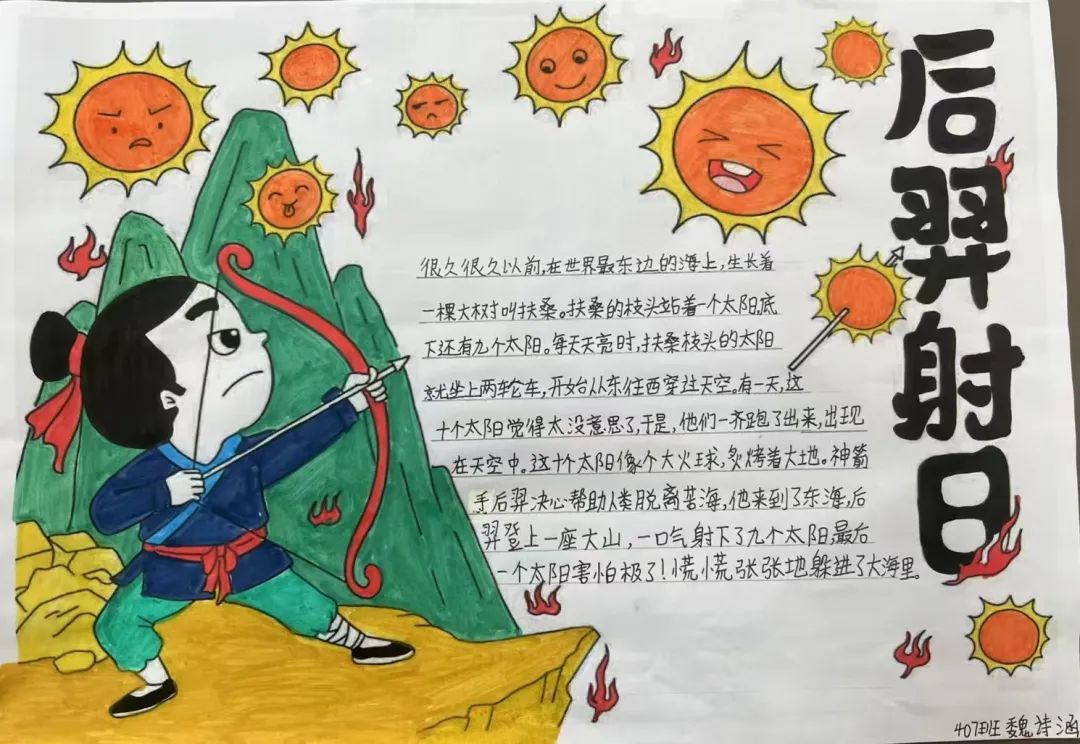 后羿射日
很久很久以前,在世界最东边的海上,生长着
一棵大树叫扶桑。扶桑的枝头站着一个太阳,底
下还有九个太阳。每天天亮时,扶桑枝头的太阳
就坐上两轮车,开始从东往西穿过天空。有一天,这
十个太阳觉得太没意思了,于是,他们一齐跑了出来,出现
在天空中。这十个太阳像个大火球,炙烤着大地。神箭
手后羿决心帮助人类脱离苦海,他来到了东海,后
羿登上一座大山,一口气射下了九个太阳,最后
一个太阳害怕极了!慌慌张张地躲进了大海里。
407班 魏诗涵